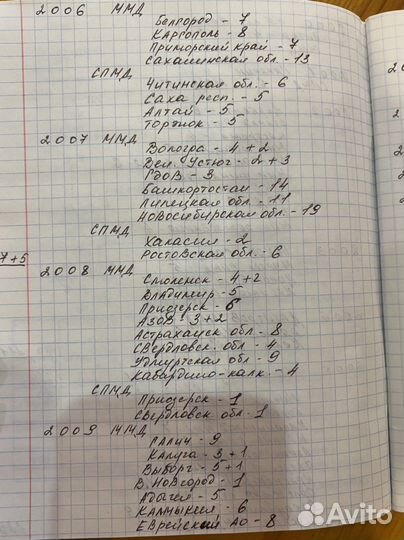 2006 ММД
Белгород - 7
Каргополь - 8
Приморский край - 7
Сахалинская обл. - 13
СПМД
Читинская обл. - 6
Саха респ. - 5
Алтай - 5
Торжок - 5
2007 ММД
Вологда - 4+2
Вел. Устюг - 2+3
Гдов - 3
Башкортостан - 14
Липецкая обл. - 11
Новосибирская обл. - 19
СПМД
Хакасия - 2
Ростовская обл. - 6
7+5
2008 ММД
Смоленск - 4+2
Владимир - 5
Приозерск - 6
Азов - 3+2
Астраханск обл - 8
Свердловск. обл - 4
Удмуртская обл - 9
Кабардино-балк. - 4
СПМД
Приозерск - 1
Свердловск обл - 1
2009 ММД
Галич - 9
Калуга - 3+1
Выборг - 5+1
В. Новгород - 1
Адыгея - 5
Калмыкия - 6
Еврейский АО - 8
Avito